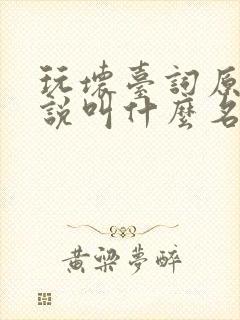 玩壞臺詞原
說叫什麼名
黃梁夢醉